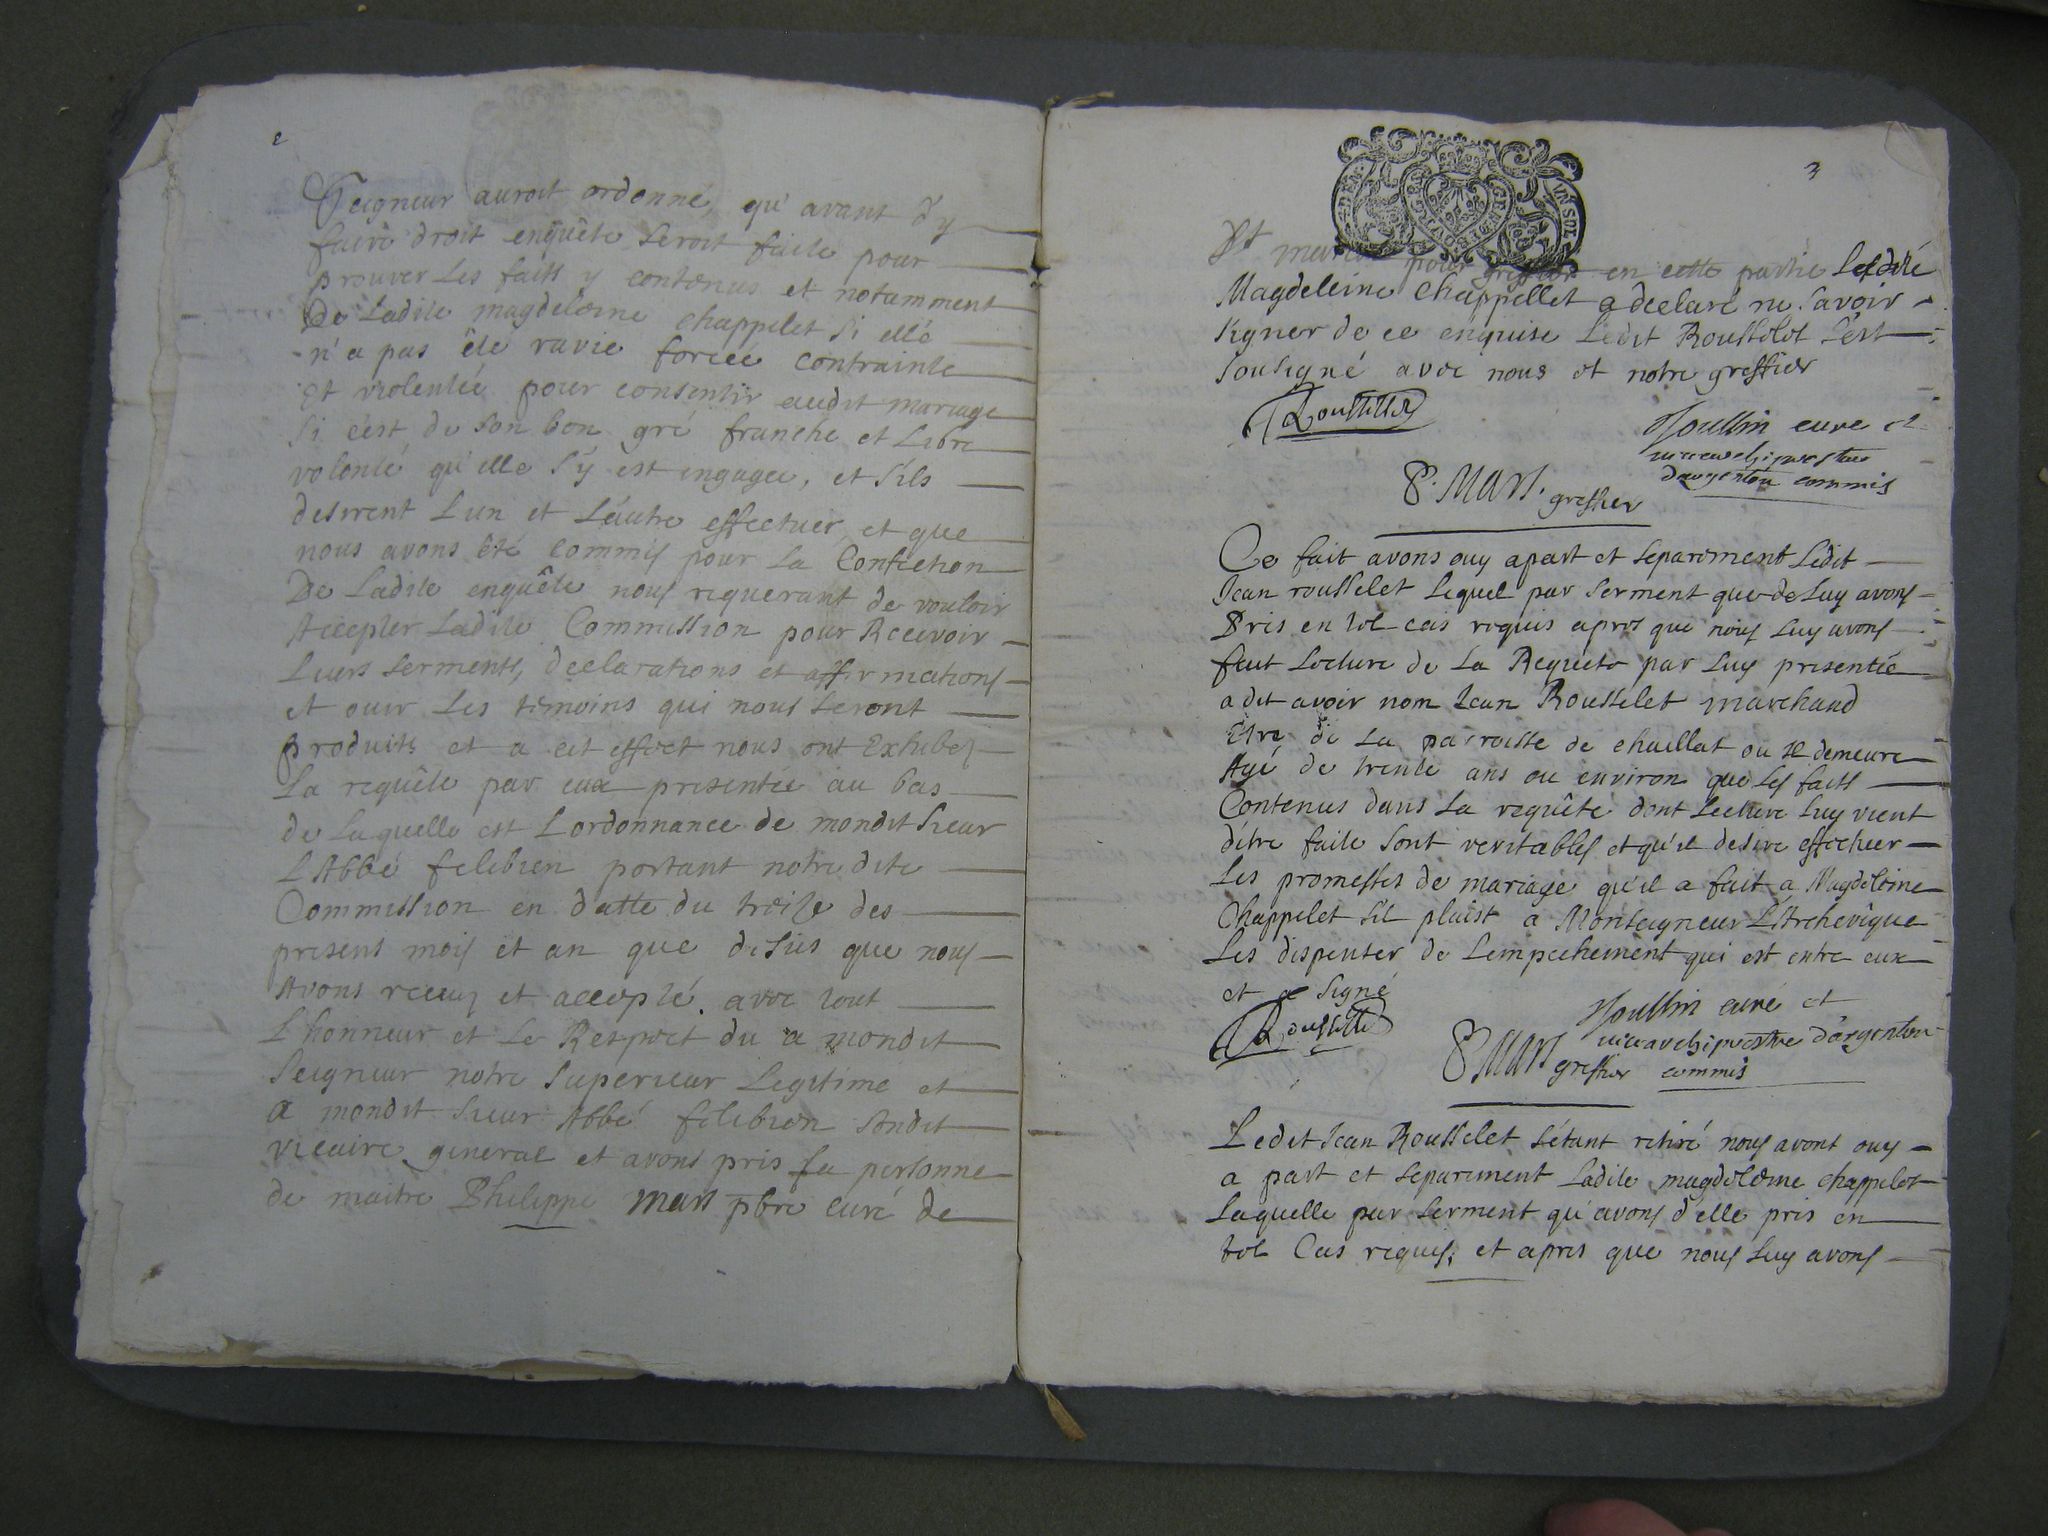 2
Seigneur auroit ordonné, qu'avant d'y
faire droit enquête seroit faite pour
prouver les faits y contenus et notamment
De ladite magdeleine chappelet si elle
n'a pas été ravie forcée contrainte
et violentée pour consentir audit mariage
si c'est de son bon gré franche et Libre
volonté qu'elle s'y est engagée, et s'ils
desirent L'un et L'autre effectuer, et que
nous avons été commis pour La Confection
De Ladite enquête nous requerant de vouloir
Accepter Ladite Commission pour Recevoir
Leurs serments, declarations et affirmations
et ouir Les témoins qui nous seront
produits et a cet effect nous ont Exhibez
La requête par eux presentée au bas
de Laquelle est L'ordonnance de mondit sieur
L'Abbé felibien portant notre dite
Commission en datte du treize des
presens mois et an que desus que nous
Avons receuz et accepté. avec tout
L'honneur et Le Respect du a mondit
Seigneur notre Superieur Legitime et
a mondit sieur Abbé felibien sondit
vicaire general et avons pris La personne
de maitre Philippe Mars pbre curé de
GEN DE BOURGES
UN SOL
3
St marcel pour greffier en cette partie Ladite
Magdeleine Chappellet a declaré ne savoir
signer de ce enquise Ledit Rousselet s'est
sousigné avec nous et notre greffier
Rousselet
curé et
vicearchiprestre
dargenton commis
P. Mars. greffier
Ce fait avons ouy apart et separement Ledit
Jean rousselet Lequel par serment que de Luy avons
Pris en tel cas requis apres que nous Luy avons
fait Lecture de La Requete par Luy presentée
a dit avoir nom Jean Rousselet marchand
Etre de La parroisse de chaillat ou il demeure
Agé de trente ans ou environ que Les faits
Contenus dans La requête dont Lecture Luy vient
d'être faite sont veritables et qu'il desire effectuer
Les promesses de mariage qu'il a fait a Magdeleine
Chappelet s'il plaist a Monseigneur L'Archevêque
Les dispenser de Lempechement qui est entre eux
et a signé
Rousselet
curé et
vicearchiprestre d'argenton
P Mars greffier commis
Ledit Jean Rousselet s'étant retiré nous avons ouy
a part et separement Ladite magdeleine chappelet
Laquelle par serment qu'avons d'elle pris en
tel Cas requis, et apres que nous Luy avons